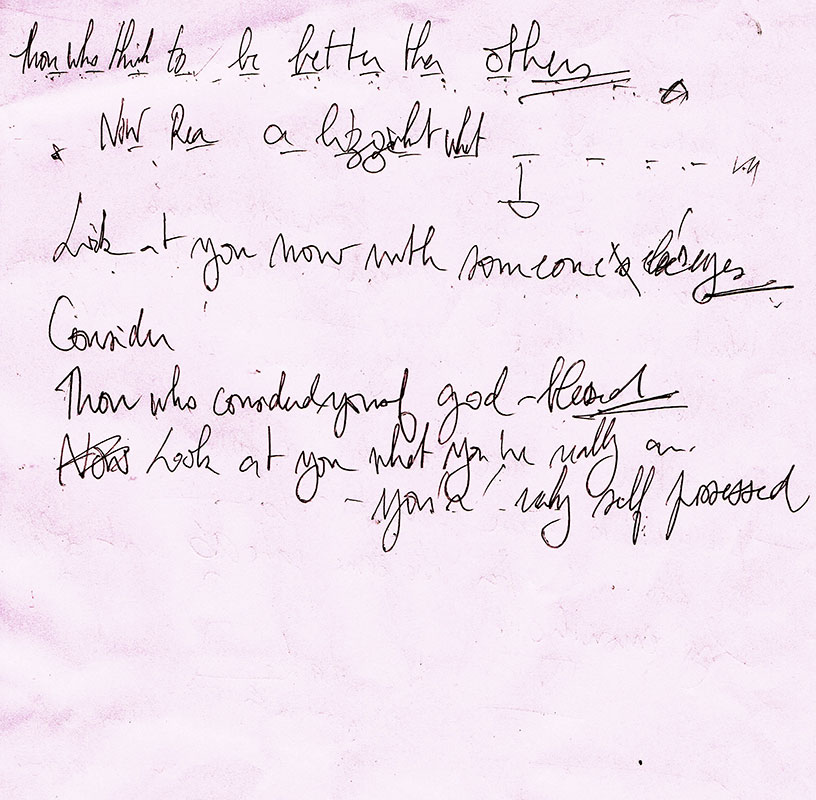 Thou who think to be better then others
Now Rea a what
Look at you now with someone's eyes
Consider
Thou who considered yourself god-blessed
Now Look at you what you're really are.
- you're really self possessed